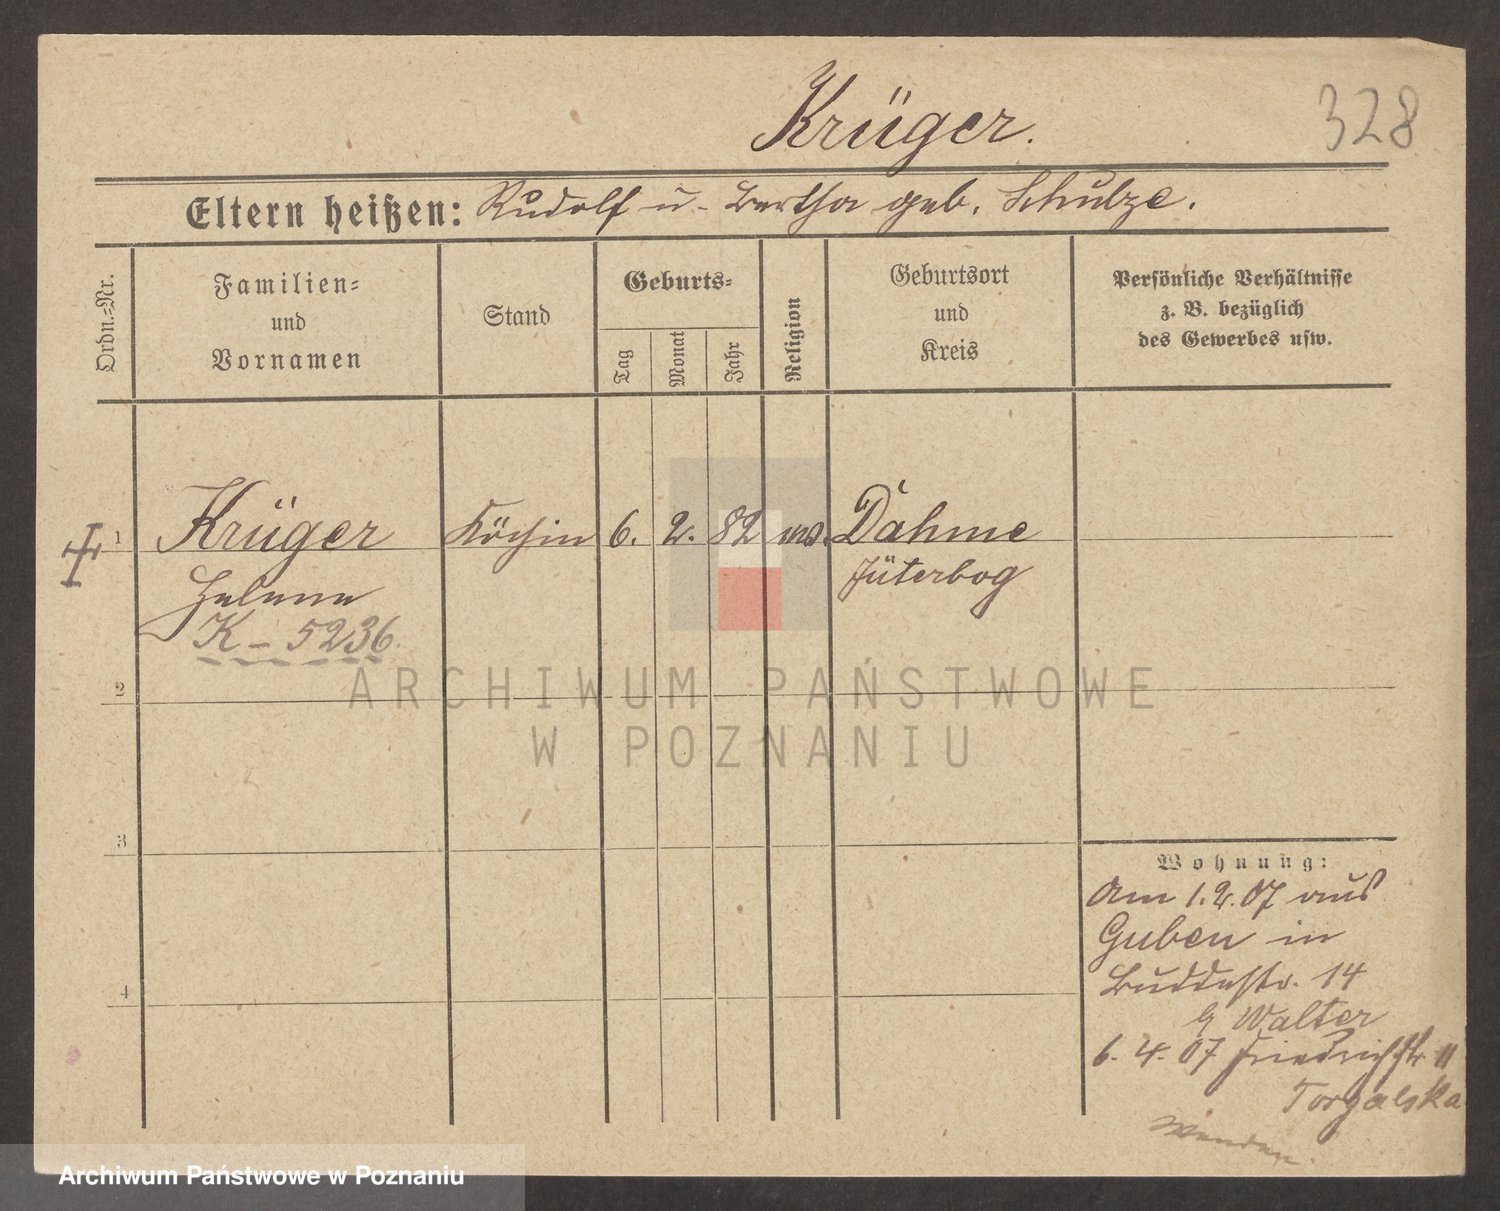 Krüger.
328
Eltern heißen: Rudolf u. Bertha geb. Schulze.
Ordn.-Nr.
Familien-
und
Vornamen
Stand
Geburts-
Tag
Monat
Jahr
Religion
Geburtsort
und
Kreis
Persönliche Verhältnisse
z. B. bezüglich
des Gewerbes usw.
1 Krüger Köchin 6. 2. 82 Dahme
Helene Jüterbog
K - 5236.
2
ARCHIWUM PAŃSTWOWE
W POZNANIU
3
4
Wohnung:
Am 1.2.07 aus
Guben in
Buddestr. 14
Walter
6. 4. 07 Friedrichstr 11
Torgalska
Wenden
Archiwum Państwowe w Poznaniu